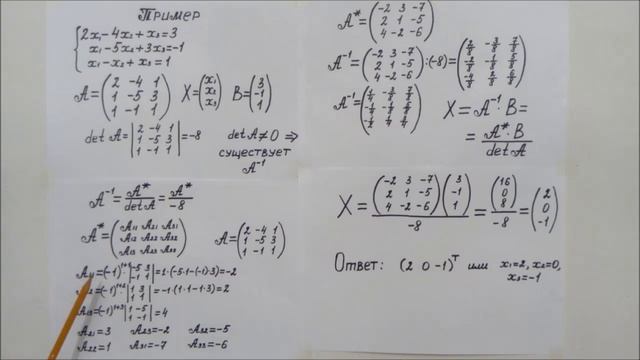 Пример
2x₁-4x₂+x₃=3
x₁-5x₂+3x₃=-1
x₁-x₂+x₃=1
A=(2 -4 1
1 -5 3
1 -1 1) X=(x₁
x₂
x₃) B=(3
-1
1)
det A=|2 -4 1
1 -5 3
1 -1 1|=-8 det A≠0 ⇒
существует
A⁻¹
A⁻¹=A*/det A=A*/-8
A*=(A₁₁ A₂₁ A₃₁
A₁₂ A₂₂ A₃₂
A₁₃ A₂₃ A₃₃) A=(2 -4 1
1 -5 3
1 -1 1)
A₁₁=(-1)¹⁺¹·|-5 3
-1 1|=1·(-5·1-(-1)·3)=-2
A₁₂=(-1)¹⁺²|1 3
1 1|=-1·(1·1-1·3)=2
A₁₃=(-1)¹⁺³|1 -5
1 -1|=4
A₂₁=3 A₂₃=-2 A₃₂=-5
A₂₂=1 A₃₁=-7 A₃₃=-6
A*=(-2 3 -7
2 1 -5
4 -2 -6)
A⁻¹=(-2 3 -7
2 1 -5
4 -2 -6):(-8)=(2/8 -3/8 7/8
-2/8 -1/8 5/8
-4/8 2/8 6/8)
A⁻¹=(1/4 -3/8 7/8
-1/4 -1/8 5/8
-1/2 1/4 3/4) X=A⁻¹·B=
=A*·B/det A
X=(-2 3 -7
2 1 -5
4 -2 -6)(3
-1
1)/-8=(16
0
8)/-8=(2
0
-1)
Ответ: (2 0 -1)ᵀ или x₁=2, x₂=0,
x₃=-1